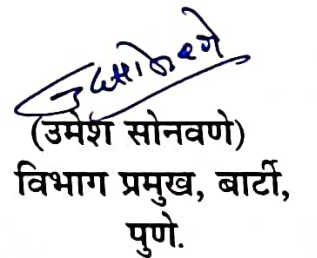 (उमेश सोनवणे)
विभाग प्रमुख, बार्टी,
पुणे.